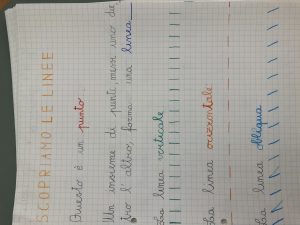 SCOPRIAMO LE LINEE
Questo è un punto.
Un insieme di punti, messi uno die
tro l'altro, forma una linea
La linea verticale
La linea orizzontale
La linea obliqua